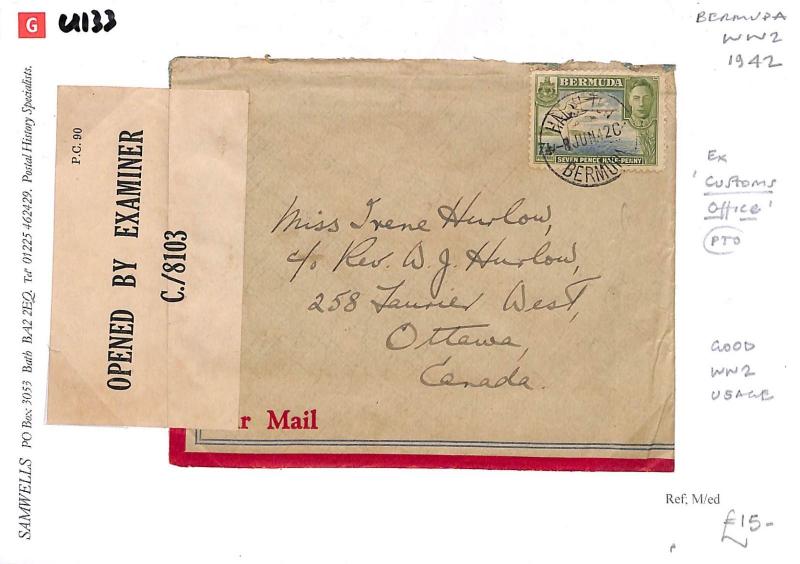 G U133
BERMUDA
WW2
1942
SAMWELLS PO Box: 3053 Bath BA2 2EQ. Tel: 01225 462429. Postal History Specialists.
P.C. 90
OPENED BY EXAMINER
C./8103
BERMUDA
HAMILTON
JUN 42
BERMUDA
SEVEN PENCE HALF-PENNY
Miss Irene Hurlow,
c/o Rev. W. J. Hurlow,
258 Laurier West,
Ottawa,
Canada.
r Mail
Ex
'CUSTOMS
OFFICE'
PTO
GOOD
WW2
USAGE
Ref; M/ed
£15-